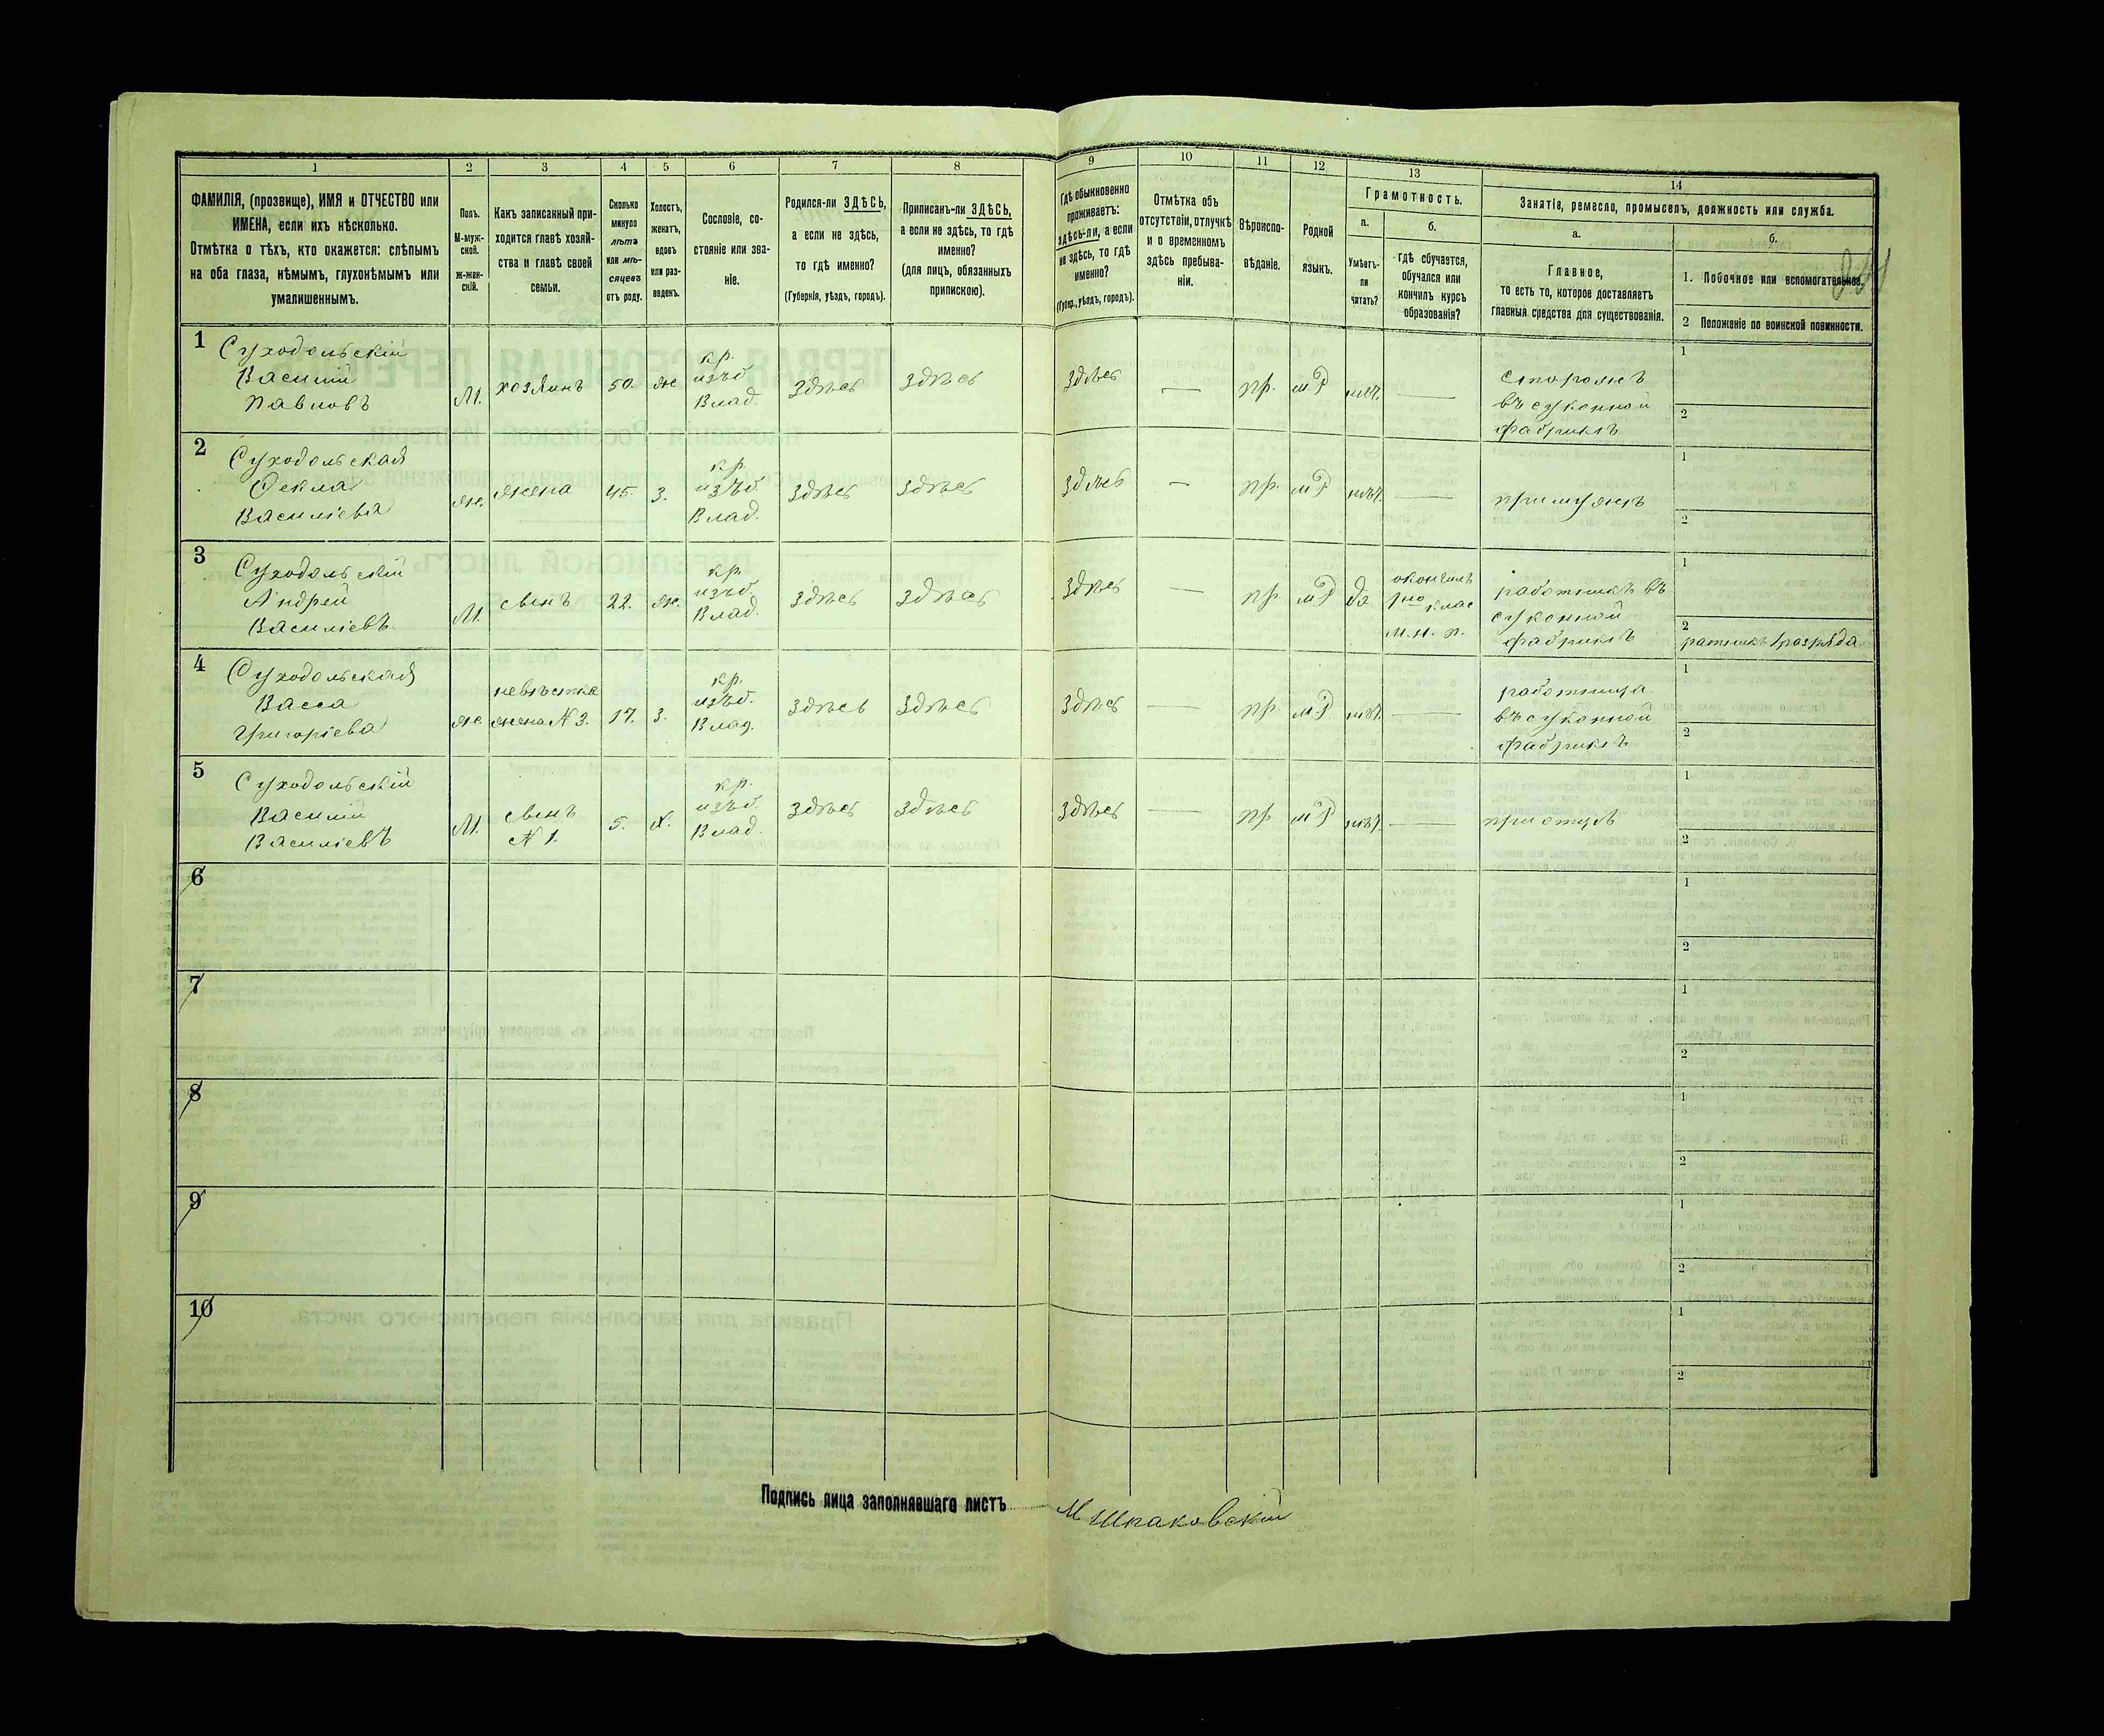 1 2 3 4 5 6 7 8 9 10 11 12 13 14
ФАМИЛІЯ, (прозвище), ИМЯ и ОТЧЕСТВО или
ИМЕНА, если ихъ нѣсколько.
Отмѣтка о тѣхъ, кто окажется: слѣпымъ
на оба глаза, нѣмымъ, глухонѣмымъ или
умалишеннымъ.
Полъ.
М-муж-
ской.
ж-жен-
скій.
Какъ записанный при-
ходится главѣ хозяй-
ства и главѣ своей
семьи.
Сколько
минуло
лѣтъ
или мѣ-
сяцевъ
отъ роду.
Холостъ,
женатъ,
вдовъ
или раз-
веденъ.
Сословіе, со-
стояніе или зва-
ніе.
Родился-ли ЗДѢСЬ,
а если не здѣсь,
то гдѣ именно?
(Губернія, уѣздъ, городъ).
Приписанъ-ли ЗДѢСЬ,
а если не здѣсь, то гдѣ
именно?
(для лицъ, обязанныхъ
припискою).
Гдѣ обыкновенно
проживаетъ:
здѣсь-ли, а если
не здѣсь, то гдѣ
именно?
(Губер., уѣздъ, городъ).
Отмѣтка объ
отсутствіи, отлучкѣ
и о временномъ
здѣсь пребыва-
ніи.
Вѣроиспо-
вѣданіе.
Родной
языкъ.
Грамотность.
а.
Умѣетъ-
ли
читать?
б.
Гдѣ обучается,
обучался или
кончилъ курсъ
образованія?
Занятія, ремесло, промыселъ, должность или служба.
а.
Главное,
то есть то, которое доставляетъ
главныя средства для существованія.
б.
1. Побочное или вспомогательное.
2 Положеніе по воинской повинности.
1 Суходольскій
Василій
Павловъ
М.
хозяинъ
50.
же
кр.
изъ б.
Влад.
Здѣсь
Здѣсь
Здѣсь
—
пр.
мР
нѣт.
—
сторожъ
въ суконной
фабрикѣ
1
2
2 Суходольская
Ѳекла
Василіева
же.
жена
45.
З.
кр.
изъ б.
Влад.
Здѣсь
Здѣсь
Здѣсь
—
пр.
мР
нѣт.
—
при мужѣ
1
2
3 Суходольскій
Андрей
Василіевъ
М.
сынъ
22.
же.
кр.
изъ б.
Влад.
Здѣсь
Здѣсь
Здѣсь
—
пр.
мР
да
окончилъ
1но клас
м. н. п.
работникъ въ
суконной
фабрикѣ
1
2
ратникъ 1 разряда
4 Суходольская
Васса
Григоріева
же
невѣстка
жена N 3.
17.
З.
кр.
изъ б.
Влад.
Здѣсь
Здѣсь
Здѣсь
—
пр.
мР
нѣт.
—
работница
въ суконной
фабрикѣ
1
2
5 Суходольскій
Василій
Василіевъ
М.
сынъ
N 1.
5.
Х.
кр.
изъ б.
Влад.
Здѣсь
Здѣсь
Здѣсь
—
пр.
мР
нѣт.
—
при отцѣ
1
2
6
1
2
7
1
2
8
1
2
9
1
2
10
1
2
Подпись лица заполнявшаго листъ М Шпаковскій